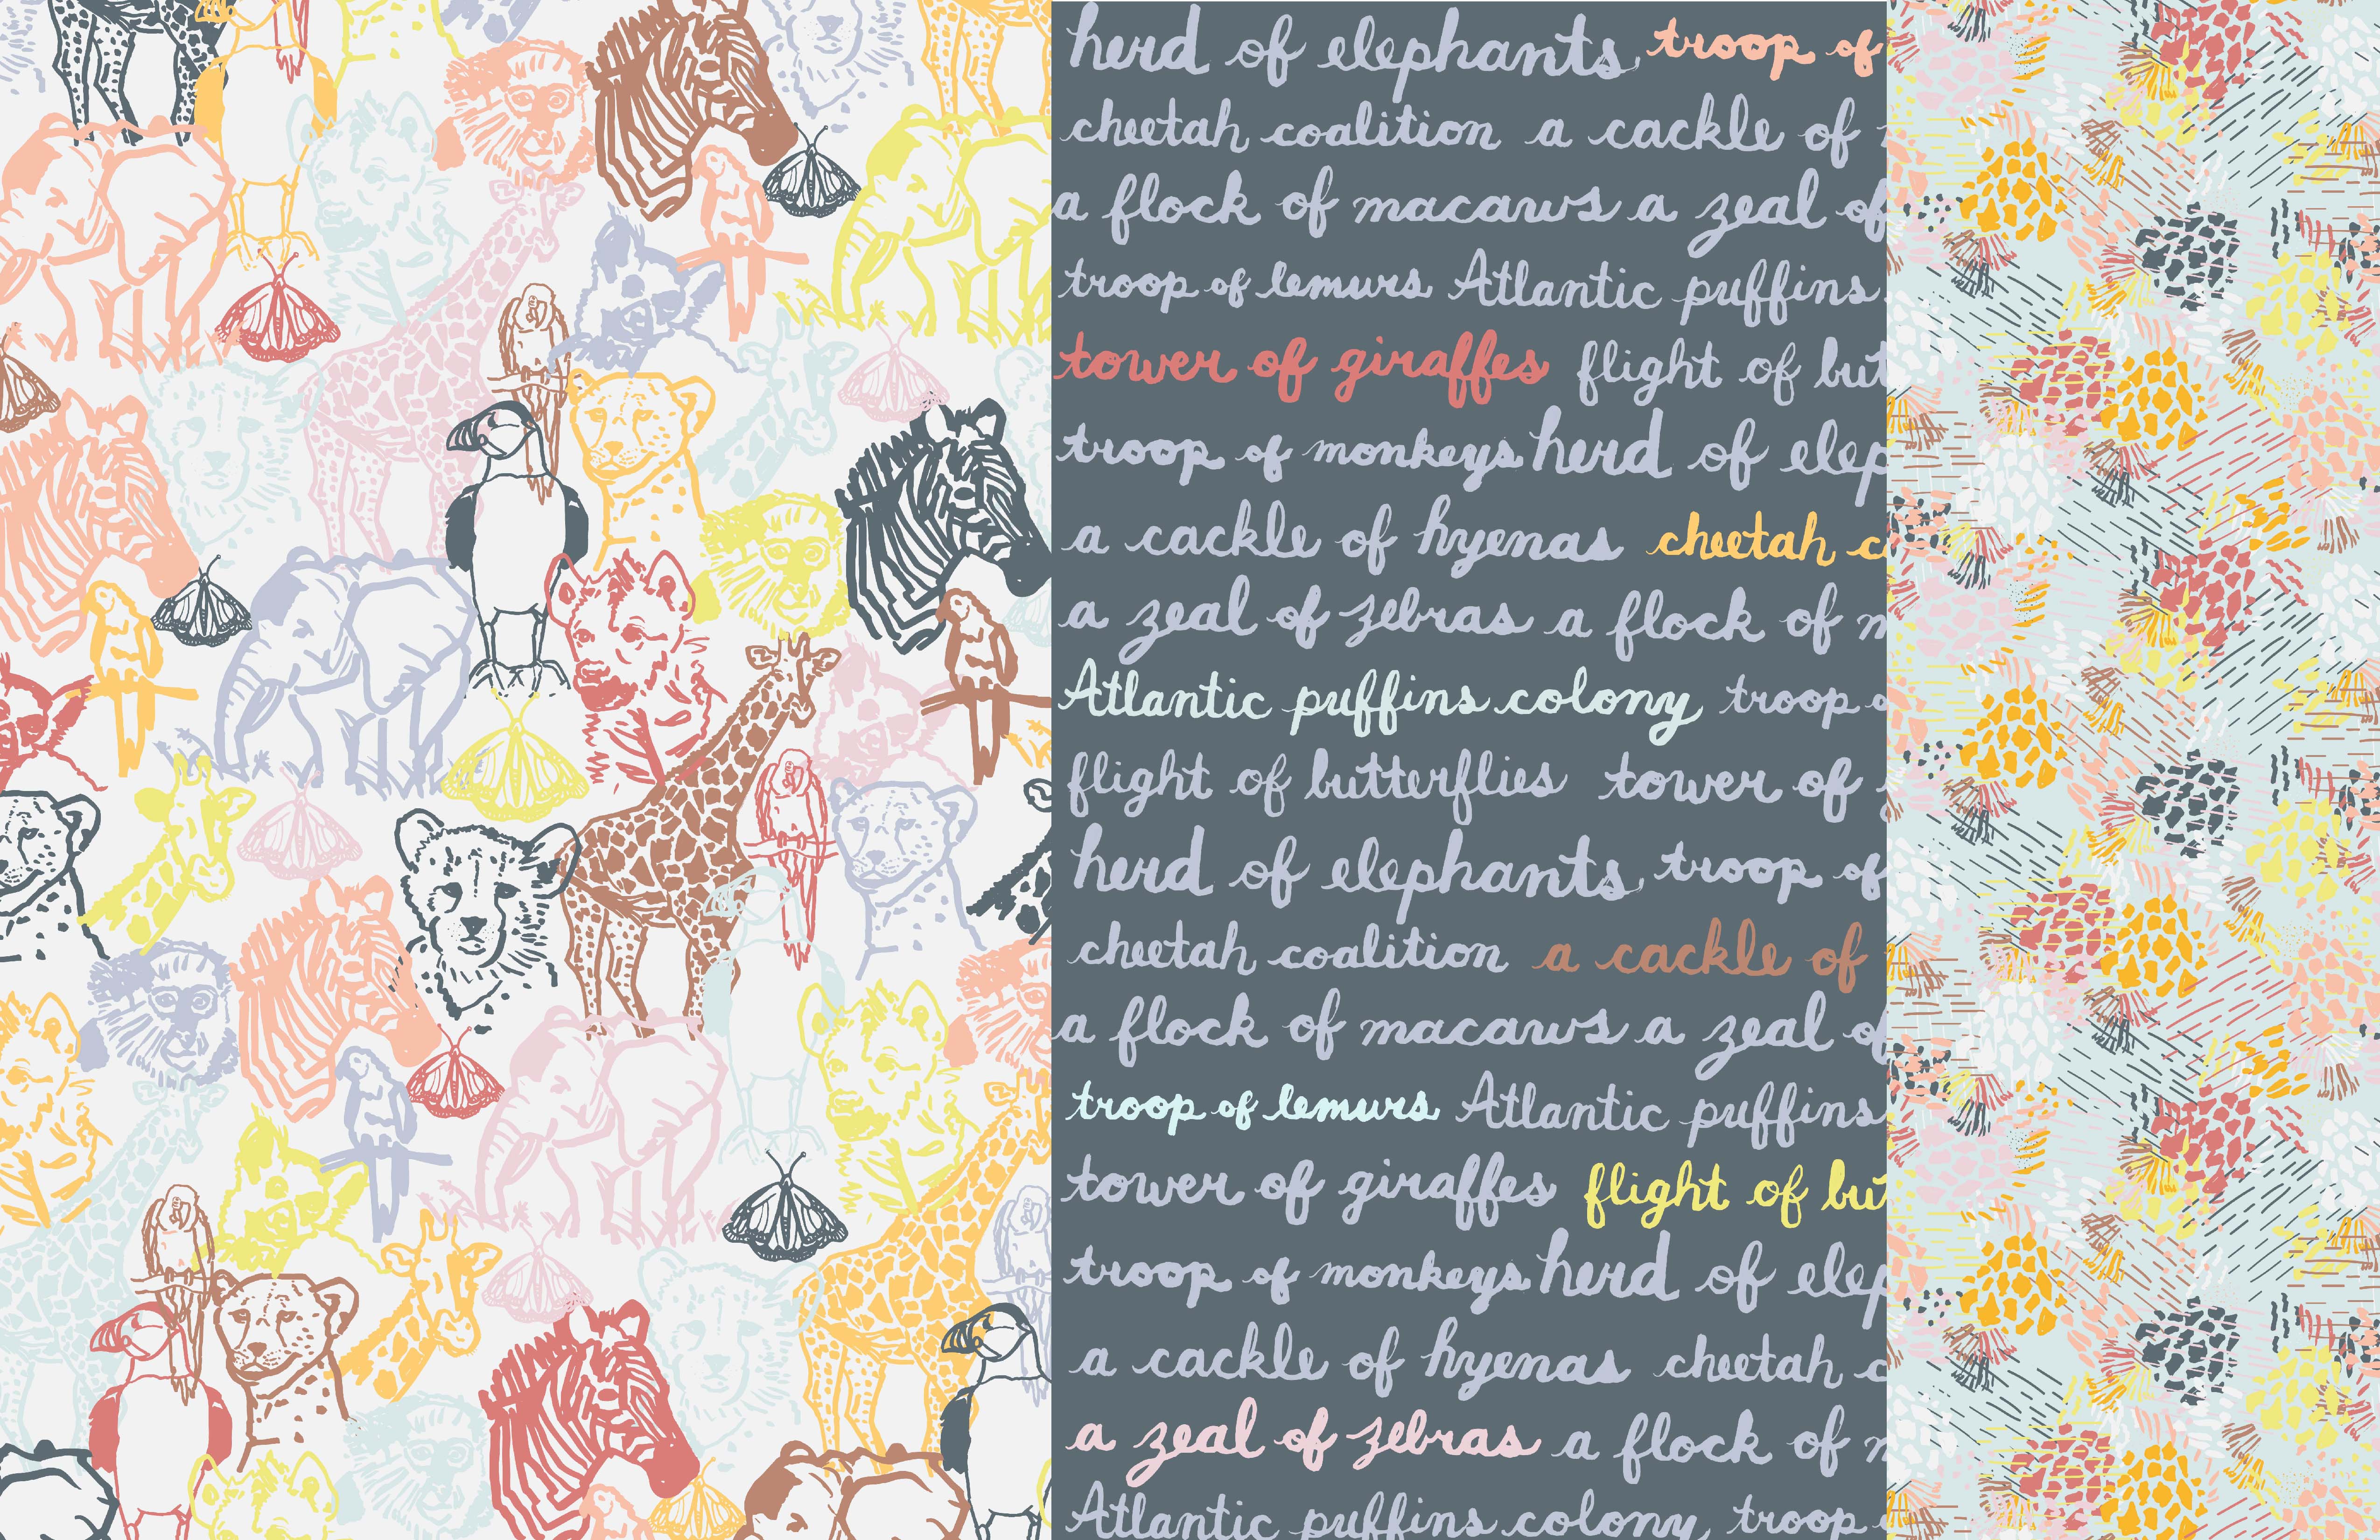 herd of elephants troop of
cheetah coalition a cackle of
a flock of macaws a zeal of
troop of lemurs Atlantic puffins
tower of giraffes flight of but
troop of monkeys herd of elep
a cackle of hyenas cheetah c
a zeal of zebras a flock of m
Atlantic puffins colony troop o
flight of butterflies tower of
herd of elephants troop of
cheetah coalition a cackle of
a flock of macaws a zeal of
troop of lemurs Atlantic puffins
tower of giraffes flight of but
troop of monkeys herd of elep
a cackle of hyenas cheetah c
a zeal of zebras a flock of m
Atlantic puffins colony troop